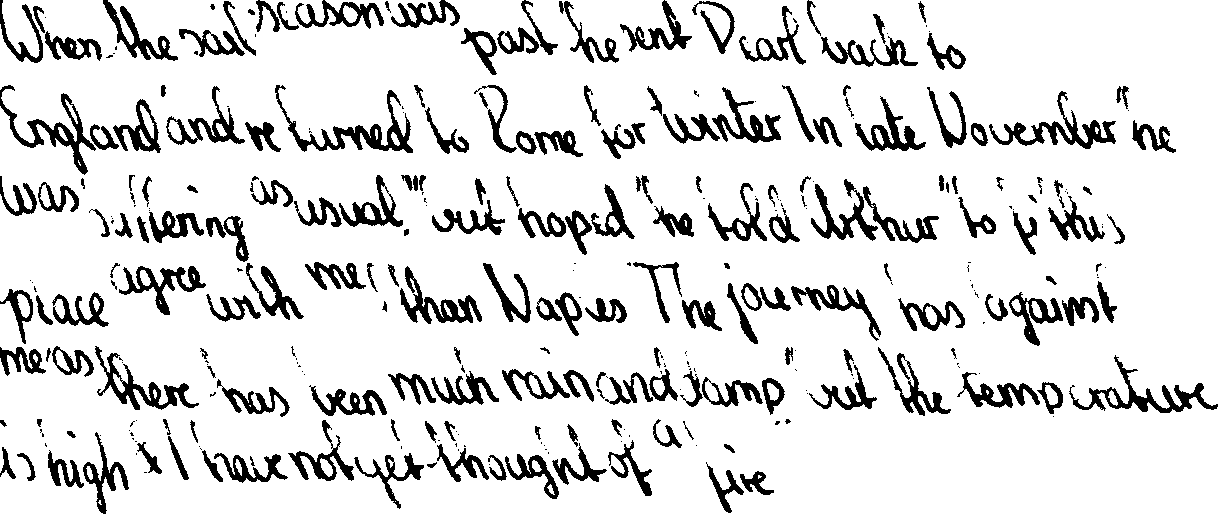 When the sail season was past he sent Pearl back to
England and returned to Rome for winter In late November "he
was suffering as usual," "but hoped" he told Arthur "to fi this
place agree with me than Naples The journey has against
me as there has been much rain and damp" but the temperature
is high & I have not yet thought of a fire